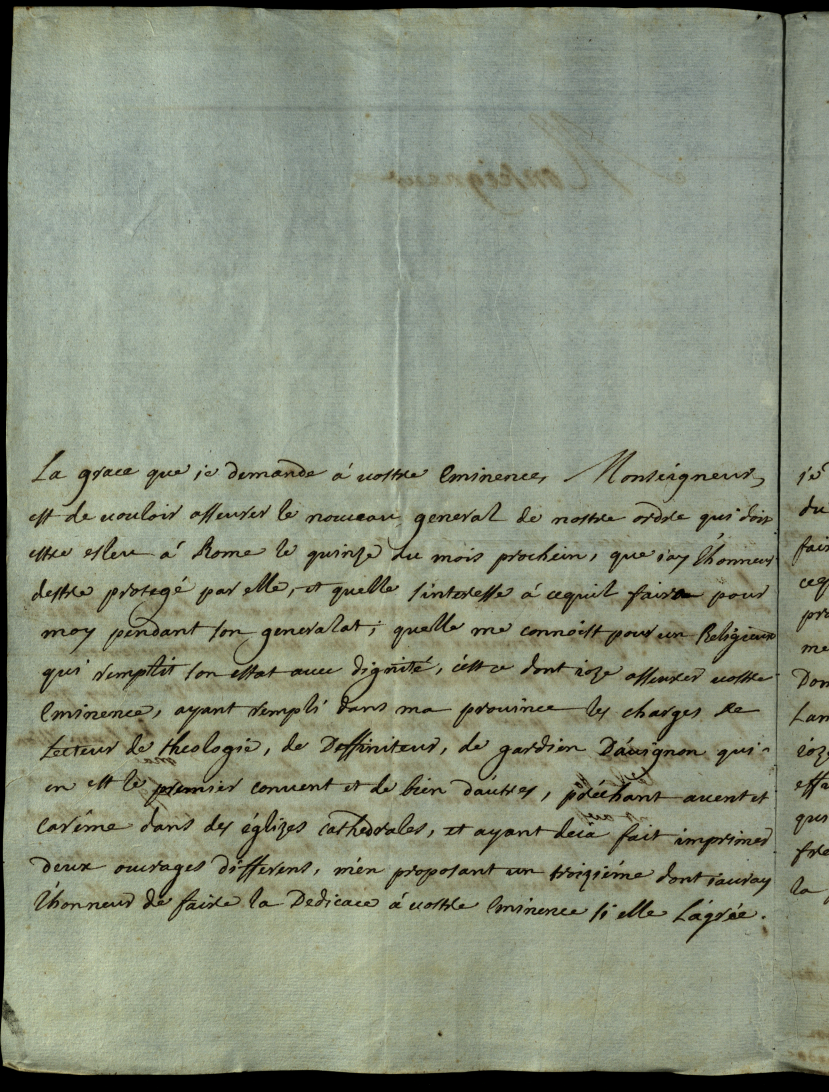 La grace que ie demande á vostre Eminence, Monseigneur,
est de vouloir asseurer le nouveau general de nostre ordre qui doit
estre esleu á Rome le quinze du mois prochein, que i'ay l'honneur
d'estre protegé par elle, et quelle s'interesse á cequil faira pour
moy pendant son generalat; quelle me connoist pour un Religieux
qui remplit son estat avec dignité, c'est ce dont ioze asseurer vostre
Eminence, ayant rempli dans ma province les charges de
Lecteur de théologie, de Deffiniteur, de gardien D'avignon qui
en est le premier convent et de bien d'autres, préchant avent et
carême dans des églizes cathedrales, et ayant deia fait imprimer
deux ouvrages differens, m'en proposant un troizième dont iauray
l'honneur de faire la Dedicace á vostre Eminence si elle L'agrée.
ie
du
fair
ceq
pr
me
Don
Lan
ioze
effa
qui
fre
la